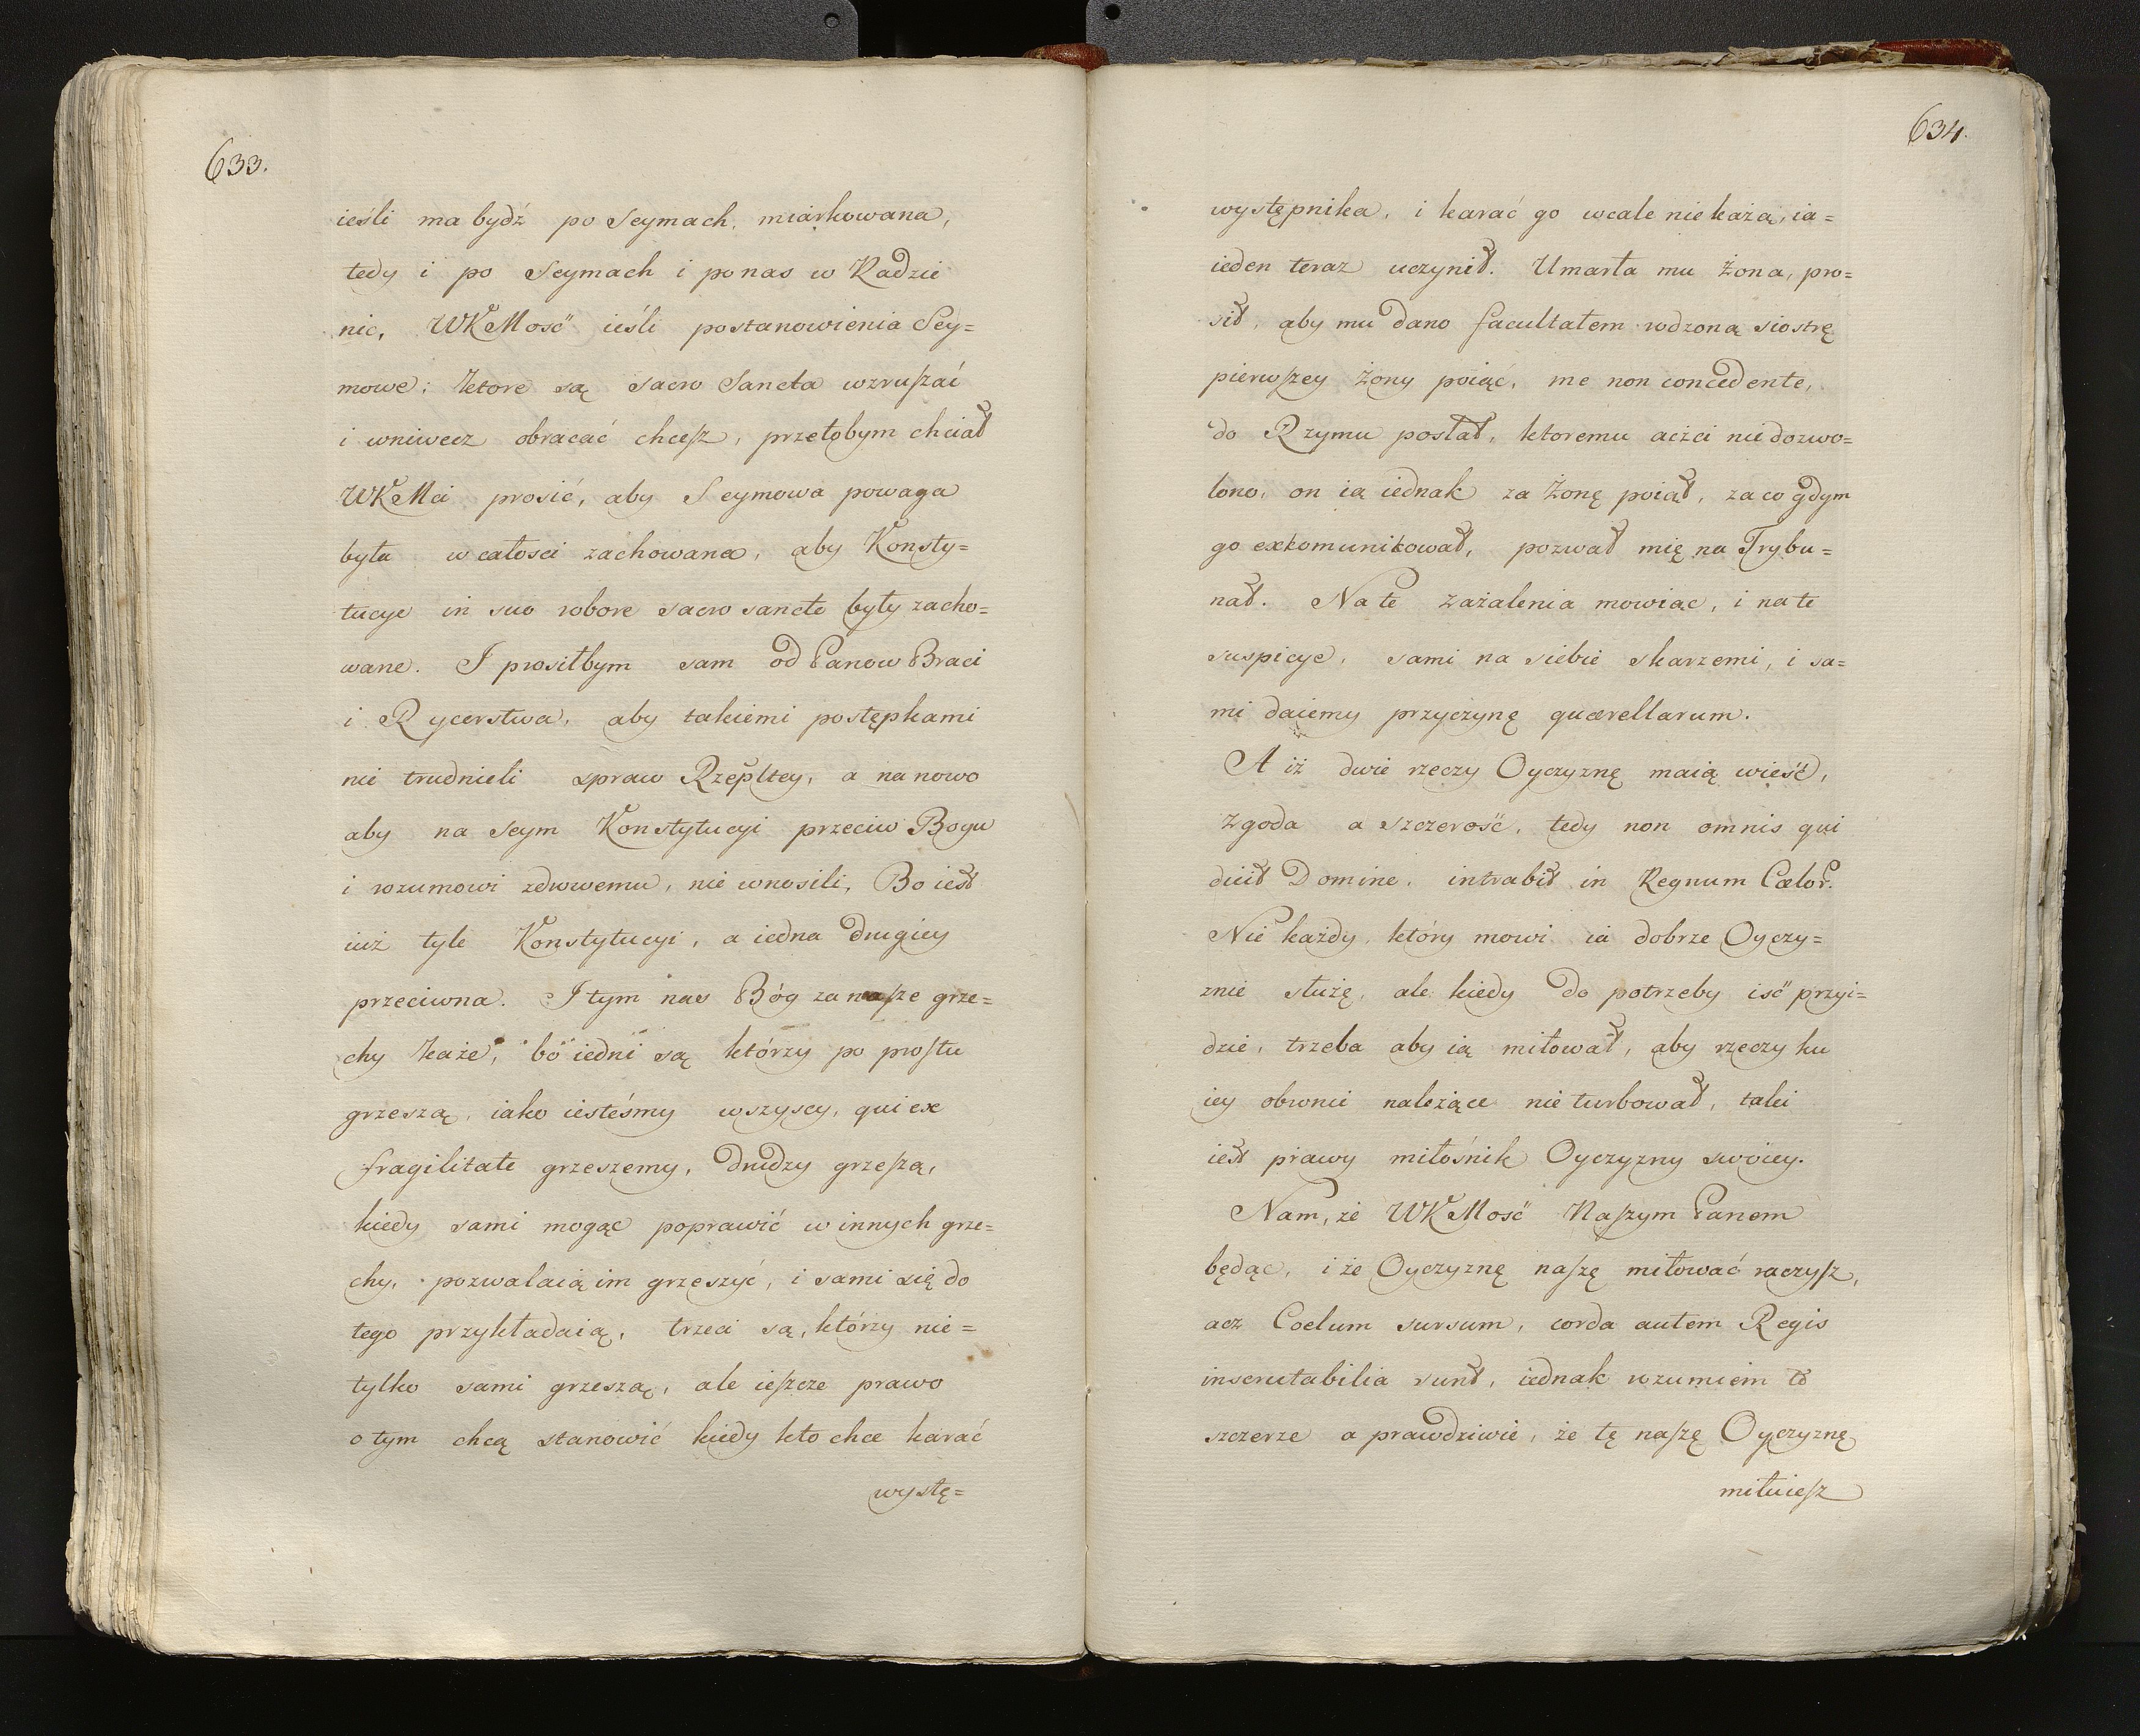 633.
ieśli ma bydź po Seymach, miarkowana,
tedy i po Seymach i po nas w Radzie
nic, WKMość ieśli postanowienia Sey=
mowe: ktore są sacro Sancta wzruszać
i wniwecz obracać chcesz, przetobym chciał
WKMci prosić, aby Seymowa powaga
była w całosci zachowana, aby Konsty=
tucye in suo robore sacro sancte były zacho=
wane. I prosiłbym sam od Panow Braci
i Rycerstwa, aby takiemi postępkami
nie trudnieli spraw Rzepltey, a na nowo
aby na Seym Konstytucyi przeciw Bogu
i rozumowi zdrowemu, nie wnosili, Bo iest
iuż tyle Konstytucyi, a iedna drugiey
przeciwna. I tym nas Bóg za nasze grze=
chy każe, bo iedni są którzy po prostu
grzeszą, iako iesteśmy wszyscy, qui ex
fragilitate grzeszemy, drudzy grzeszą,
kiedy sami mogąc poprawić w innych grze=
chy, pozwalaią im grzeszyć, i sami się do
tego przykładaią, trzeci są, którzy nie=
tylko sami grzeszą, ale ieszcze prawo
o tym chcą stanowić kiedy kto chce karać
wystę=
634.
występnika, i karać go wcale nie każą, ia=
ieden teraz uczynił. Umarła mu Żona, pro=
sił, aby mu dano facultatem rodzoną siostrę
pierwszey Żony poiąć, me non concedente,
do Rzymu posłał, ktoremu aczci nie dozwo=
lono, on ią iednak za Żonę poiął, za co gdym
go exkomunikował, pozwał mię na Trybu=
nał. Na te zażalenia mowiąc, i na te
suspicye, sami na siebie skarzemi, i sa=
mi daiemy przyczynę quærellarum.
A iż dwie rzeczy Oyczyznę maią wieść,
zgoda a szczerość, tedy non omnis qui
dicit Domine, intrabit in Regnum Cælor.
Nie każdy, który mowi ia dobrze Oyczy=
znie służę, ale kiedy do potrzeby iść przyi=
dzie, trzeba aby ią miłował, aby rzeczy ku
iey obronie należące nie turbował, taki
iest prawy miłośnik Oyczyzny swoiey.
Nam, że WKMość Naszym Panem
będąc, i że Oyczyznę naszę miłować raczysz,
acz Coelum sursum, corda autem Regis
inscrutabilia sunt, iednak rozumiem to
szczerze a prawdziwie, że tę naszę Oyczyznę
miłuiesz